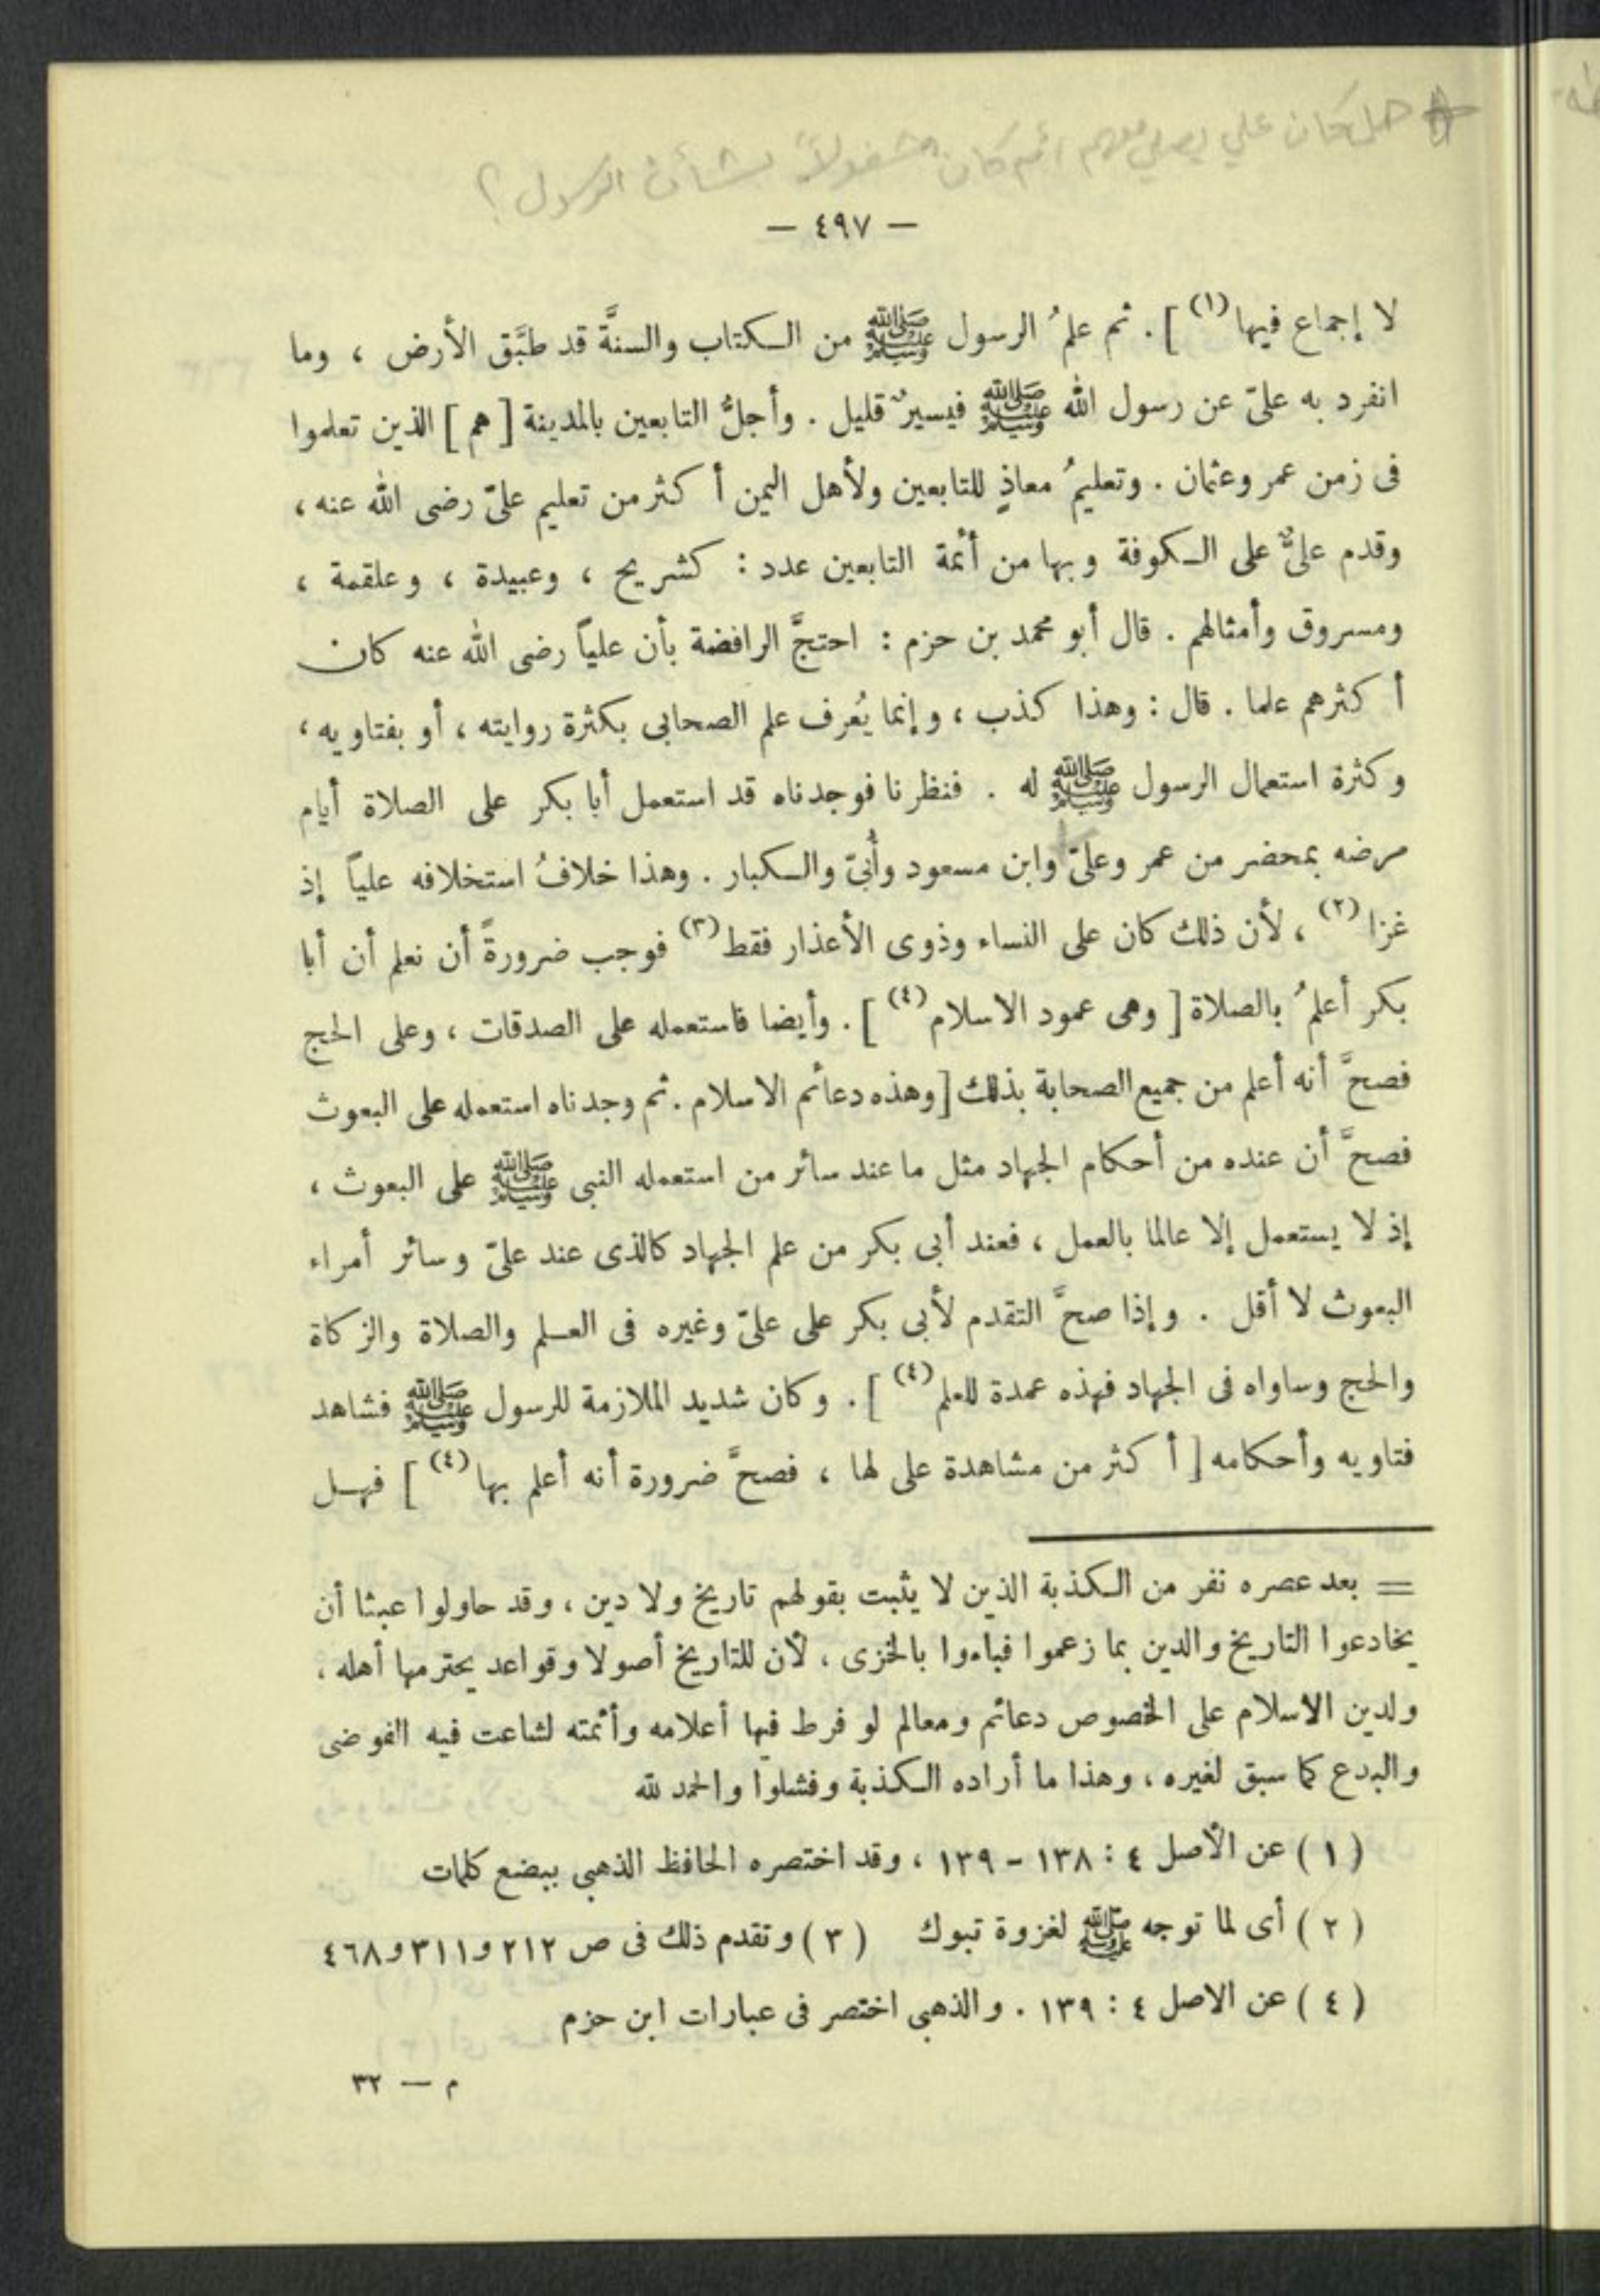 هل كان علي يصلي معهم أم كان مشغولاً بشأن الرسول؟
— ٤٩٧ —
لا إجماع فيها (١) ] . ثم علمُ الرسول ﷺ من الكتاب والسنَّة قد طبَّق الأرض ، وما
انفرد به علىّ عن رسول الله ﷺ فيسيرٌ قليل . وأجلُّ التابعين بالمدينة [ هم ] الذين تعلموا
فى زمن عمر وعثمان . وتعليمُ معاذٍ للتابعين ولأهل اليمن أكثر من تعليم علىّ رضى الله عنه ،
وقدم علىٌّ على الكوفة وبها من أئمة التابعين عدد : كشريح ، وعبيدة ، وعلقمة ،
ومسروق وأمثالهم . قال أبو محمد بن حزم : احتجَّ الرافضة بأن علياً رضى الله عنه كان
أكثرهم علما . قال : وهذا كذب ، وإنما يُعرف علم الصحابى بكثرة روايته ، أو بفتاويه ،
وكثرة استعمال الرسول ﷺ له . فنظرنا فوجدناه قد استعمل أبا بكر على الصلاة أيام
مرضه بمحضر من عمر وعلىّ وابن مسعود وأُبىّ والكبار . وهذا خلافُ استخلافه علياً إذ
غزا (٢) ، لأن ذلك كان على النساء وذوى الأعذار فقط (٣) فوجب ضرورةً أن نعلم أن أبا
بكر أعلمُ بالصلاة [ وهى عمود الاسلام (٤) ] . وأيضا فاستعمله على الصدقات ، وعلى الحج
فصحَّ أنه أعلم من جميع الصحابة بذلك [ وهذه دعائم الاسلام . ثم وجدناه استعمله على البعوث
فصحَّ أن عنده من أحكام الجهاد مثل ما عند سائر من استعمله النبى ﷺ على البعوث ،
إذ لا يستعمل إلا عالما بالعمل ، فعند أبى بكر من علم الجهاد كالذى عند علىّ وسائر أمراء
البعوث لا أقل . وإذا صحَّ التقدم لأبى بكر على علىّ وغيره فى العلم والصلاة والزكاة
والحج وساواه فى الجهاد فهذه عمدة للعلم (٤) ] . وكان شديد الملازمة للرسول ﷺ فشاهد
فتاويه وأحكامه [ أكثر من مشاهدة على لها ، فصحَّ ضرورة أنه أعلم بها (٤) ] فهل
= بعد عصره نفر من الكذبة الذين لا يثبت بقولهم تاريخ ولا دين ، وقد حاولوا عبثا أن
يخادعوا التاريخ والدين بما زعموا فباءوا بالخزى ، لأن للتاريخ أصولا وقواعد يحترمها أهله ،
ولدين الاسلام على الخصوص دعائم ومعالم لو فرط فيها أعلامه وأئمته لشاعت فيه الفوضى
والبدع كما سبق لغيره ، وهذا ما أراده الكذبة وفشلوا والحمد لله
( ١ ) عن الأصل ٤ : ١٣٨ - ١٣٩ ، وقد اختصره الحافظ الذهبى ببضع كلمات
( ٢ ) أى لما توجه ﷺ لغزوة تبوك ( ٣ ) وتقدم ذلك فى ص ٢١٢ و٣١١ و٤٦٨
( ٤ ) عن الاصل ٤ : ١٣٩ . والذهبى اختصر فى عبارات ابن حزم
م — ٣٢